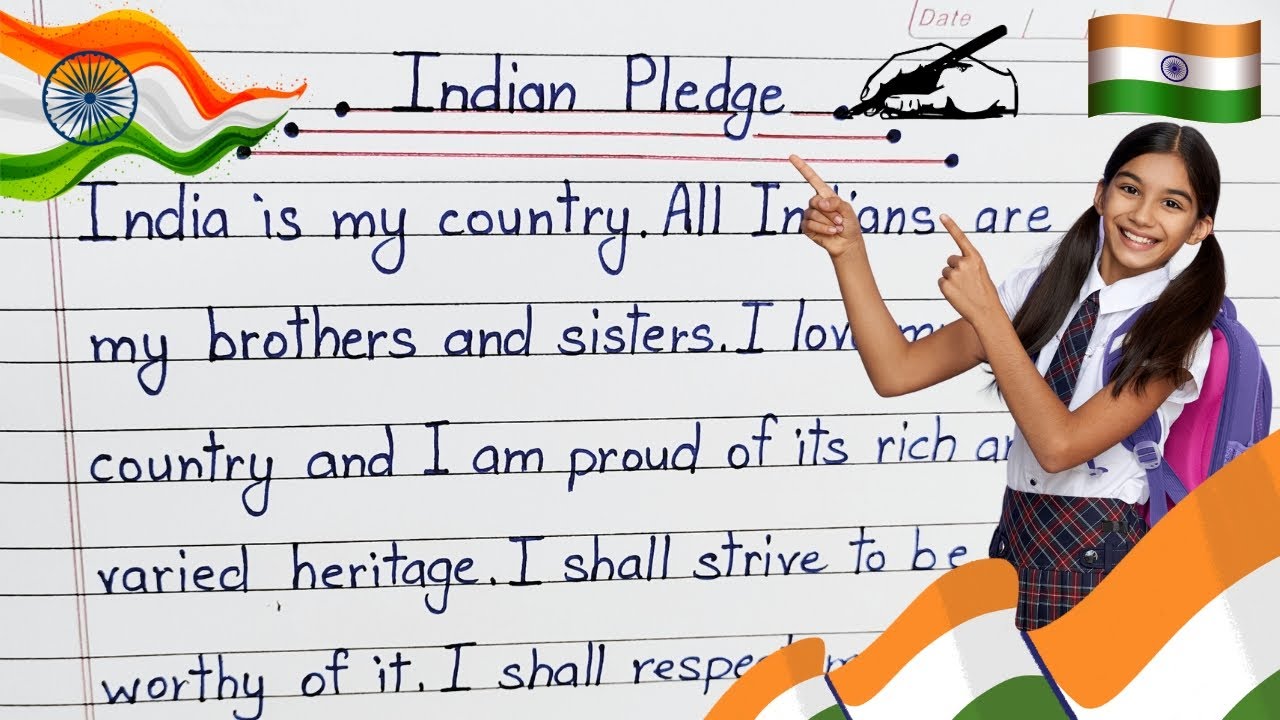 Date
Indian Pledge
India is my country. All Indians are
my brothers and sisters. I love my
country and I am proud of its rich and
varied heritage. I shall strive to be
worthy of it. I shall respect